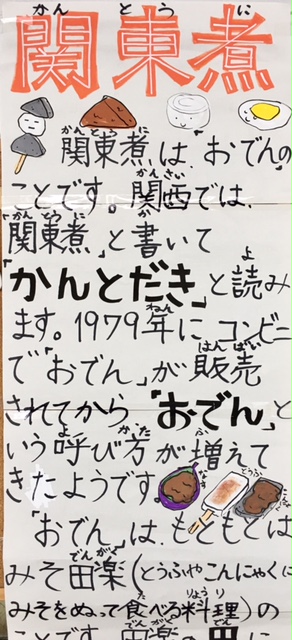 関東煮
関東煮は、「おでん」の
ことです。関西では、
「関東煮」と書いて
「かんとだき」と読み
ます。1979年に コンビニ
で「おでん」が販売
されてから「おでん」と
いう呼び方が増えて
きたようです。
「おでん」は、もともとは
みそ田楽(とうふやこんにゃくに
みそをぬって食べる料理)の
ことです。田楽の